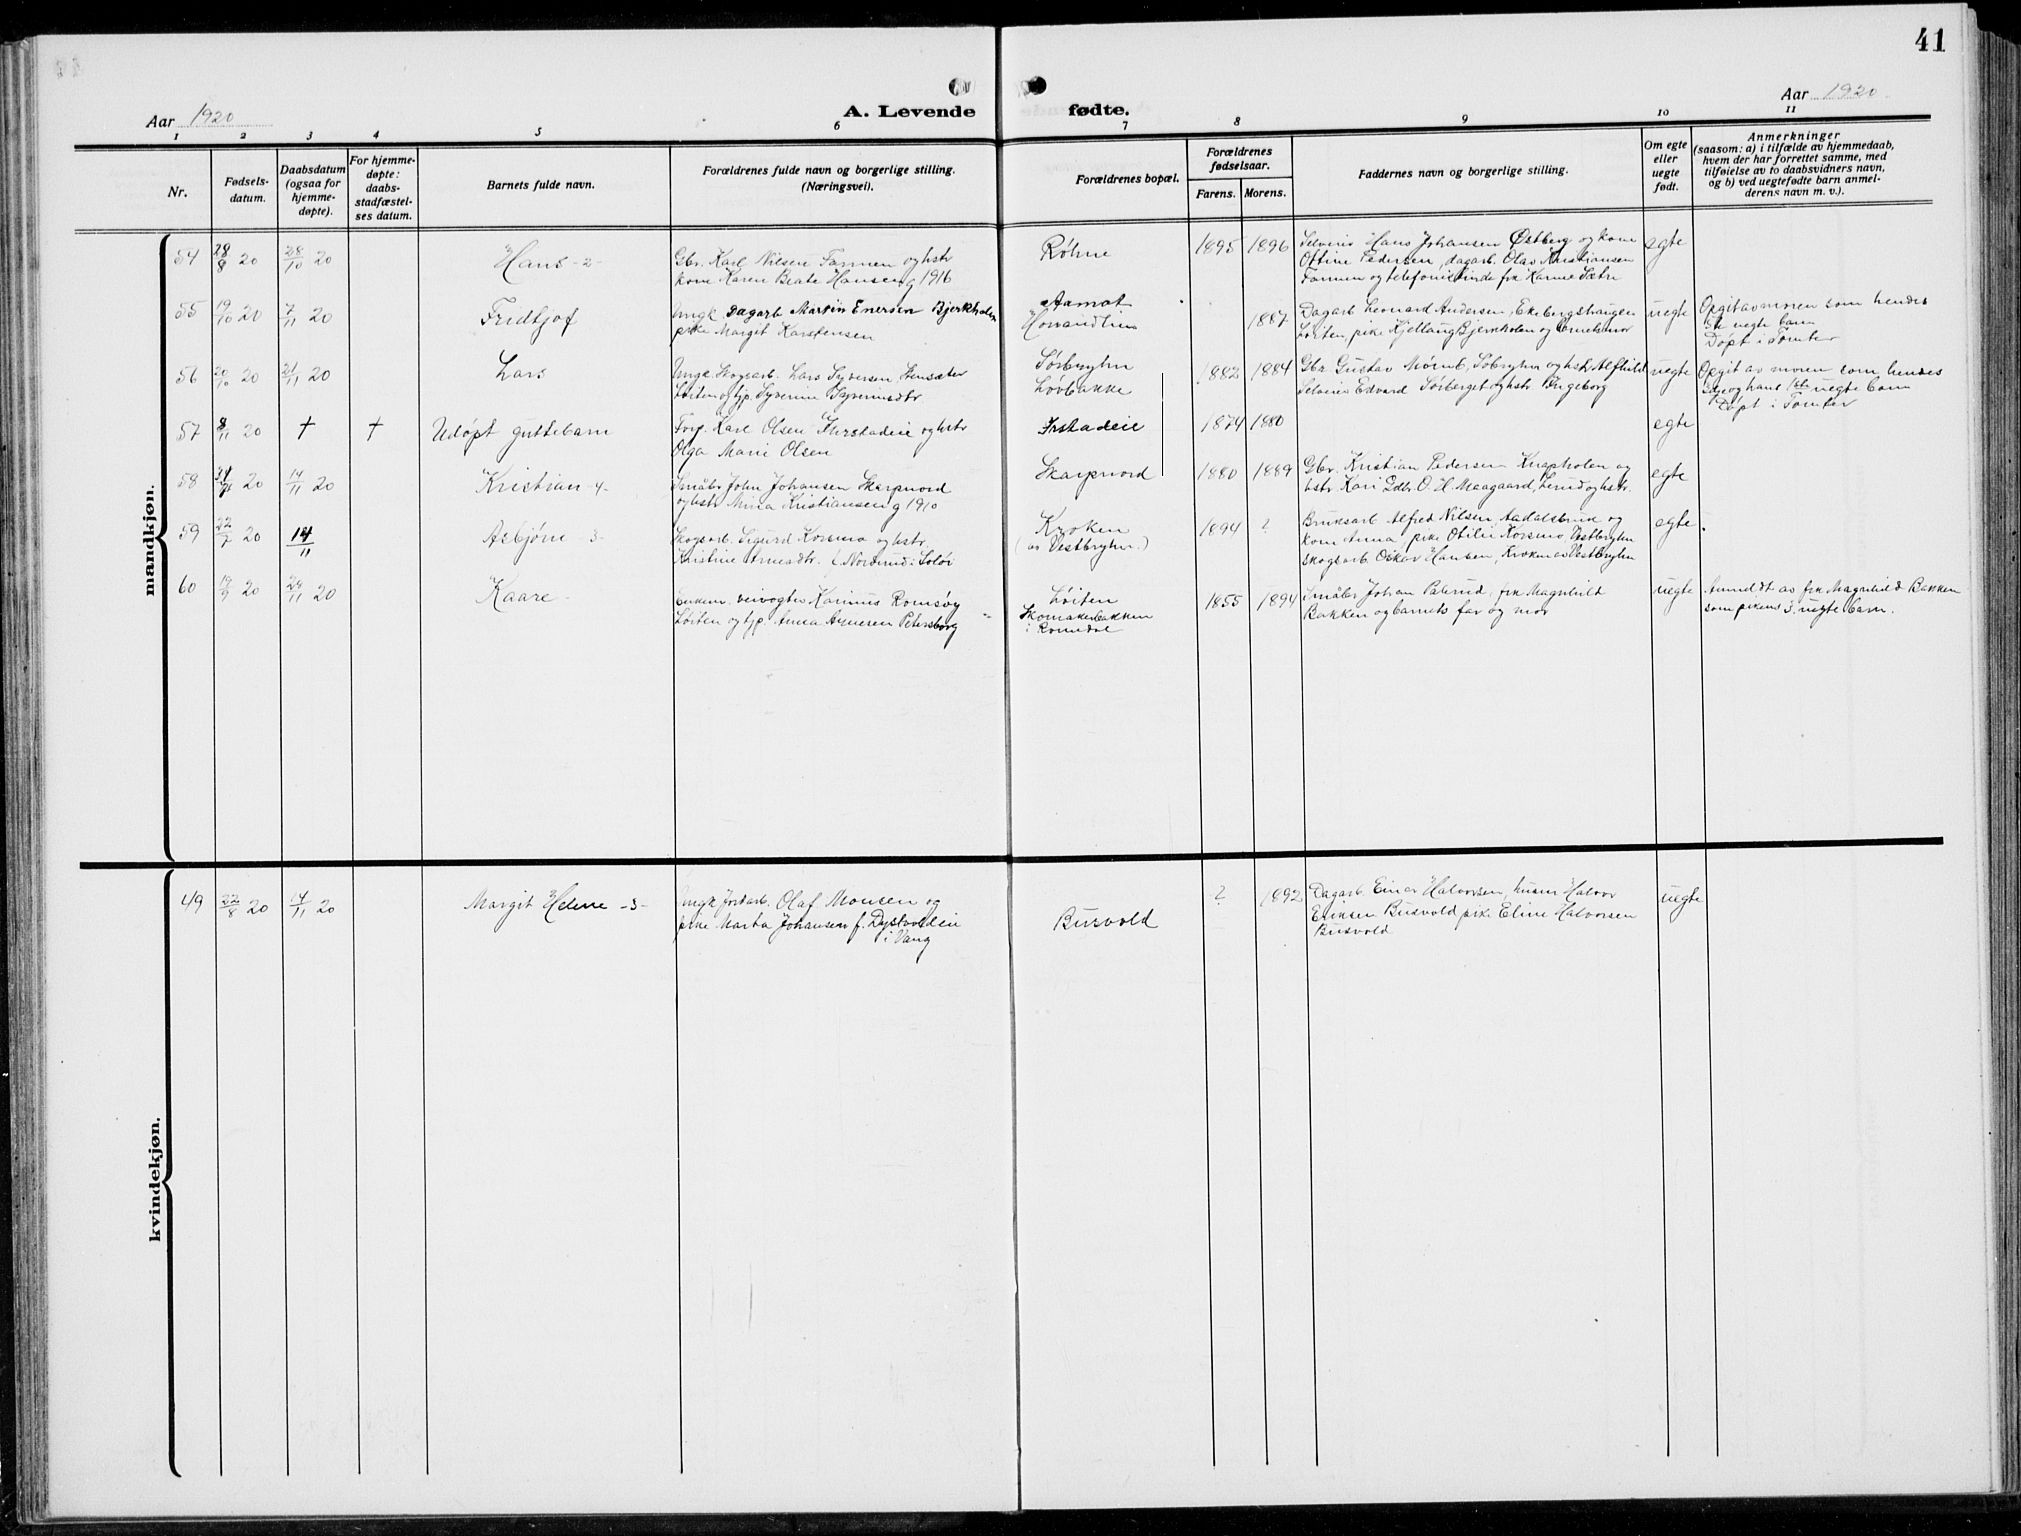 41
Aar 1920
A. Levende fødte.
Aar 1920
1 2 3 4 5 6 7 8 9 10 11
Nr.
Fødsels-
datum.
Daabsdatum
(ogsaa for
hjemme-
døpte).
For hjemme-
døpte:
daabs-
stadfæstel-
ses datum.
Barnets fulde navn.
Forældrenes fulde navn og borgerlige stilling.
(Næringsvei).
Forældrenes bopæl.
Forældrenes
fødselsaar.
Farens. Morens.
Faddernes navn og borgerlige stilling.
Om egte
eller
uegte
født.
Anmerkninger
(saasom: a) i tilfælde av hjemmedaab,
hvem der har forrettet samme, med
tilføielse av to daabsvidners navn,
og b) ved uegtefødte barn anmel-
derens navn m. v.).
mandkjøn.
54
28/8 20
28/10 20
Hans -2-
Gbr. Karl Nilsen Farmen og hstr
kone Karen Beate Hansen g 1916
Røhne
1895 1896
Selveier Hans Johansen Østberg og kone
Oftine Pedersen, dagarb. Olav Kristiansen
Farmen og telefonistinde frk Karine Sætre
egte
55
19/10 20
7/11 20
Fridtjof
Ungk Dagarb Martin Enersen Bjerkholen
pike Margit Karstensen
Aamot
1887
Dagarb Leonard Andersen, Ekebergstrangen
Løiten, pike Kjellaug Bjernholen og barnets mor
uegte
Opgit av moren som hendes
1ste uegte barn
Døpt i Tomter
56
20/10 20
21/11 20
Lars
Ungk Skogsarb. Lars Syversen Stensæter
Løiten og tjp. Syverine Syversdtr
Sørbryhn
Løvbakke
1882 1884
Gbr. Gustav Mørub, Sobryhn og hstr Alfhild
Selveier Edvard Sørberget og hstr Ingeborg
uegte
Opgit av moren som hendes
3dje og hans 1ste uegte barn
Døpt i Tomter
57
8/11 20
†
†
Udøpt guttebarn
Forp. Karl Olsen Ihrstadeie og hstr
Olga Marie Olsen
Irstadeie
1874 1880
egte
58
20
14/11 20
Kristian -4-
Småbr John Johansen Skarpnord
og hstr Mina Kristiansen g 1910
Skarpnord
1880 1889
Gbr. Kristian Pedersen Knapholen og
hstr Kari Gdbr. O. H. Maagaard, Lerud og hstr.
egte
59
22/7 20
14/11
Asbjørn -3-
Skogsarb. Sigurd Korsmo og hstr
Kristine Arnesdtr. f. Norderud i Solør
Kroken
(av Vestbryhn.)
1894 ?
Bruksarb Alfred Nilsen Aadalsbruk og
kom Anna pike Otilie Korsmo, Vestbryhn
skogsarb Oskar Hansen, Kroken av Vestbryhn
egte
60
19/9 20
29/11 20
Kaare -
Enkem. veivogter Karinus Romsøy
Løiten og tjp. Anna Arnesen Petersborg
Løiten
Skomakerbakken
i Romedal
1855 1894
Småbr Johan Palerud, frk Magnhild
Bakken og barnets far og mor
uegte
Anmeldt av frk Magnhild Bakken
som pikens 3. uegte barn.
kvindekjøn.
49
22/8 20
14/11 20
Margit Helene -3-
Ungk Jordarb. Olaf Monsen og
pike Marta Johansen f. Dystvoldeie
i Vang
Busvold
? 1892
Dagarb Einar Halvorsen, husm Halvor
Eriksen Busvold pike Eline Halvorsen
Busvold
uegte